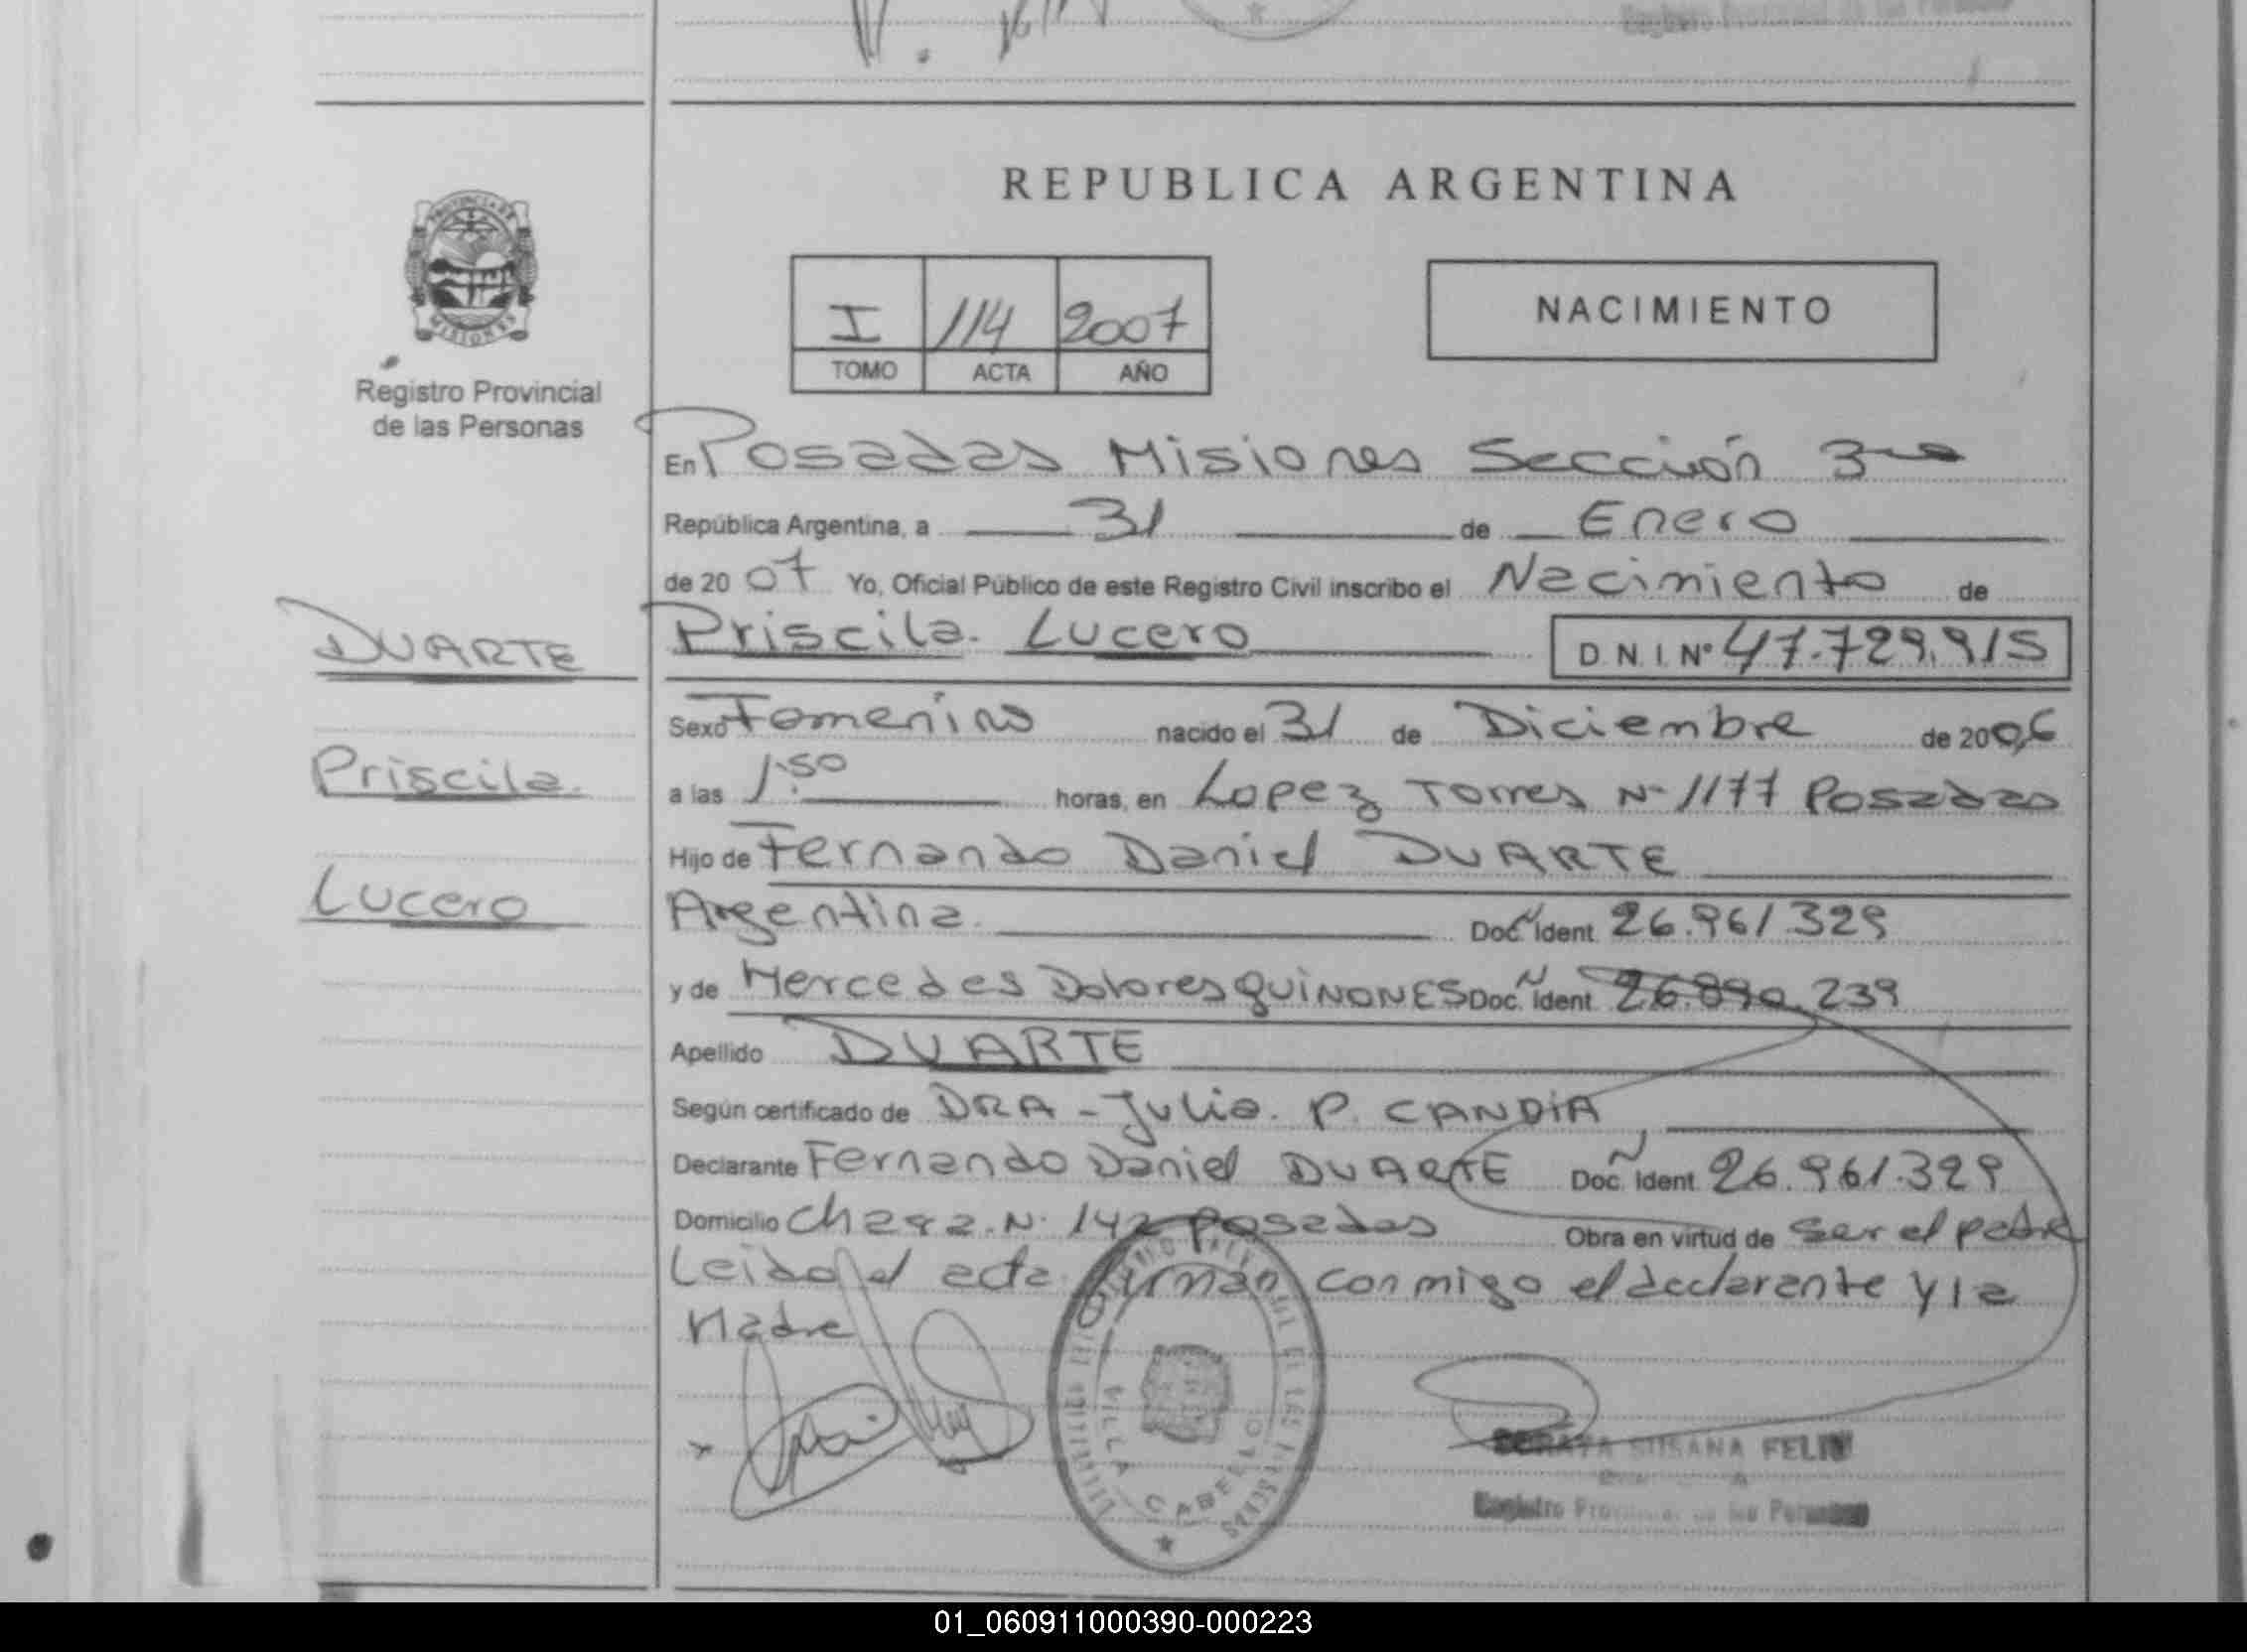 REPUBLICA ARGENTINA
I 114 2007
TOMO ACTA AÑO
NACIMIENTO
PROVINCIA DE
MISIONES
Registro Provincial
de las Personas
En Posadas Misiones Sección 3ra
República Argentina, a 31 de Enero
de 2007 Yo, Oficial Público de este Registro Civil inscribo el Nacimiento de
DUARTE
Priscila
Lucero
Priscila Lucero D.N.I. Nº 47.729.915
Sexo Femenino nacido el 31 de Diciembre de 2006
a las 1:50 horas, en Lopez Torres Nº 1177 Posadas
Hijo de Fernando Daniel DUARTE
Argentina Doc. Ident. 26.961.329
y de Mercedes Dolores QUIÑONES Doc. Ident. 26.890.239
Apellido DUARTE
Según certificado de DRA - Julia P. CANDIA
Declarante Fernando Daniel DUARTE Doc. Ident. 26.961.329
Domicilio Nº 142 Posadas Obra en virtud de ser el padre
Leida el acta firman conmigo el declarante y la
Madre
VILLA CABELLO
SUSANA FELIU
Registro
01_060911000390-000223